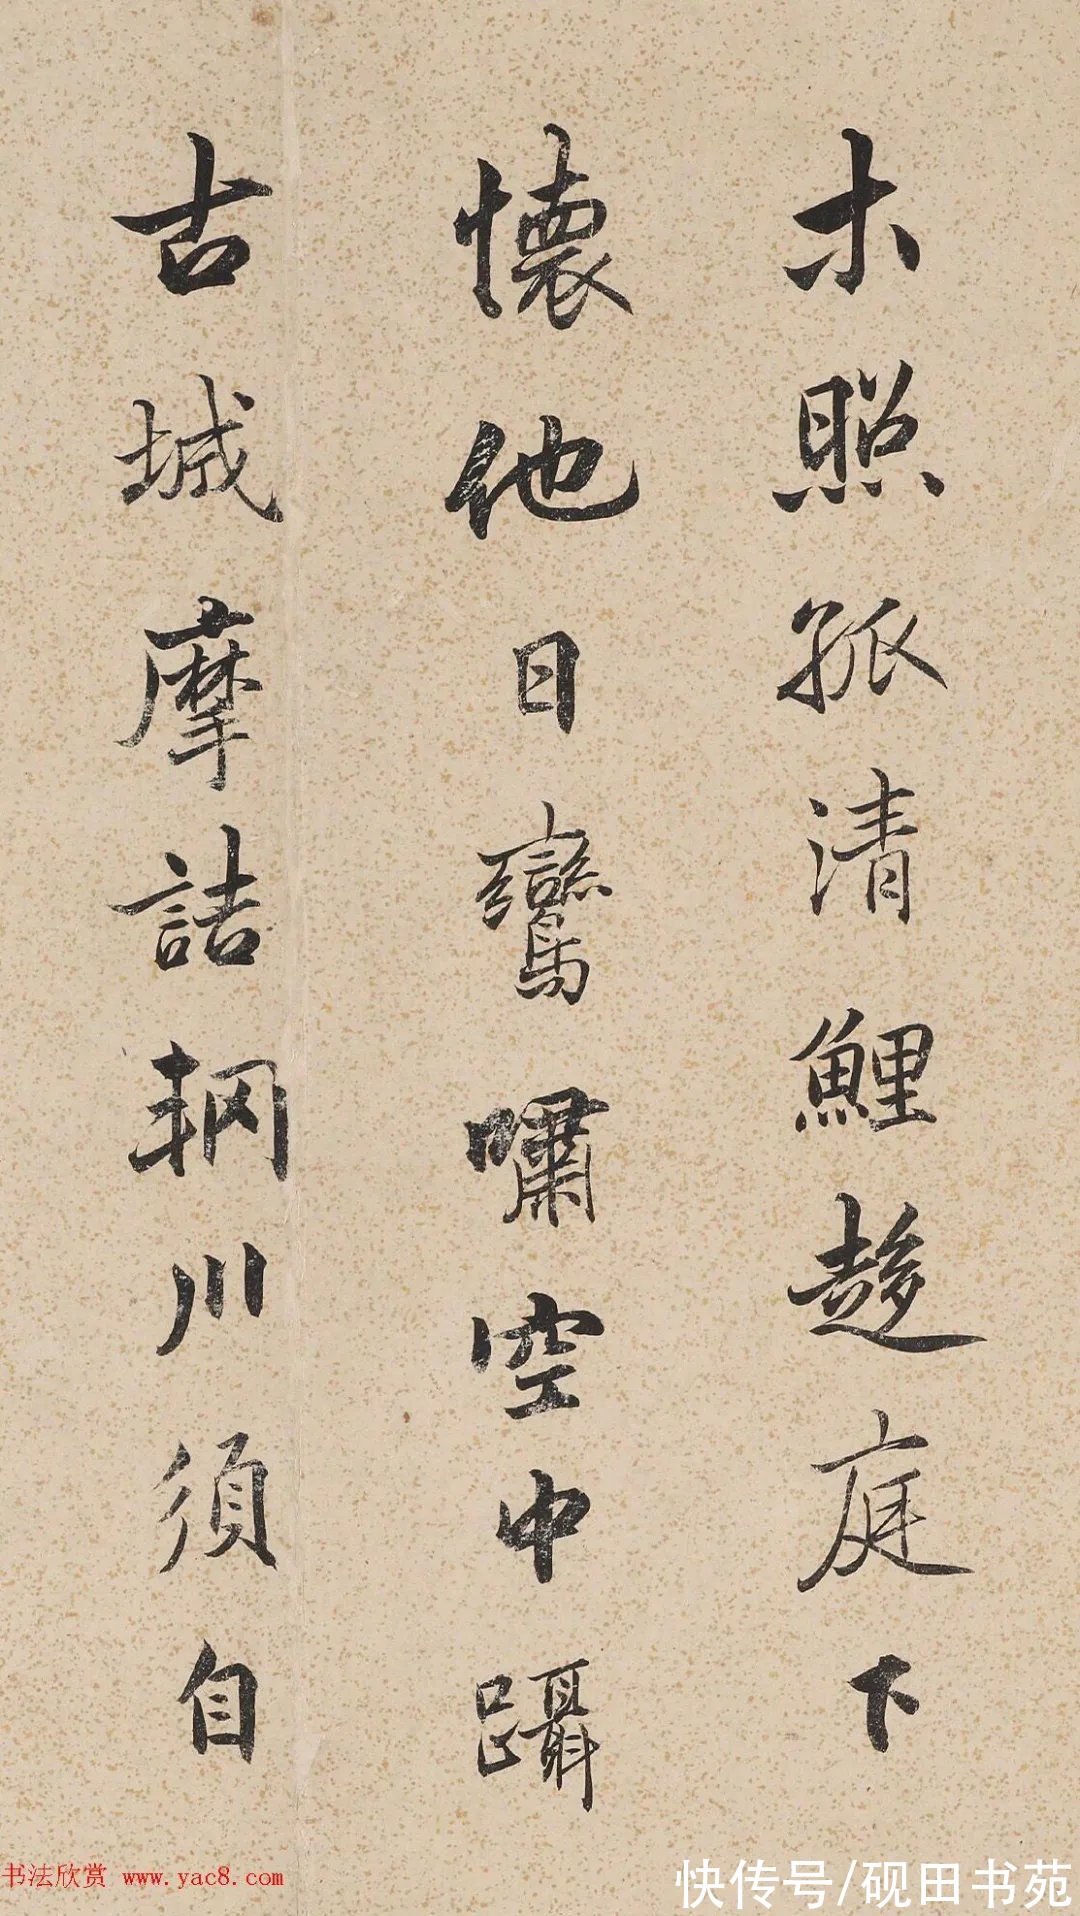 木照孤清鯉趍庭下
懷他日鸞嘯空中躡
古城摩詰輞川須自
书法欣赏 www.yac8.com
快传号/砚田书苑